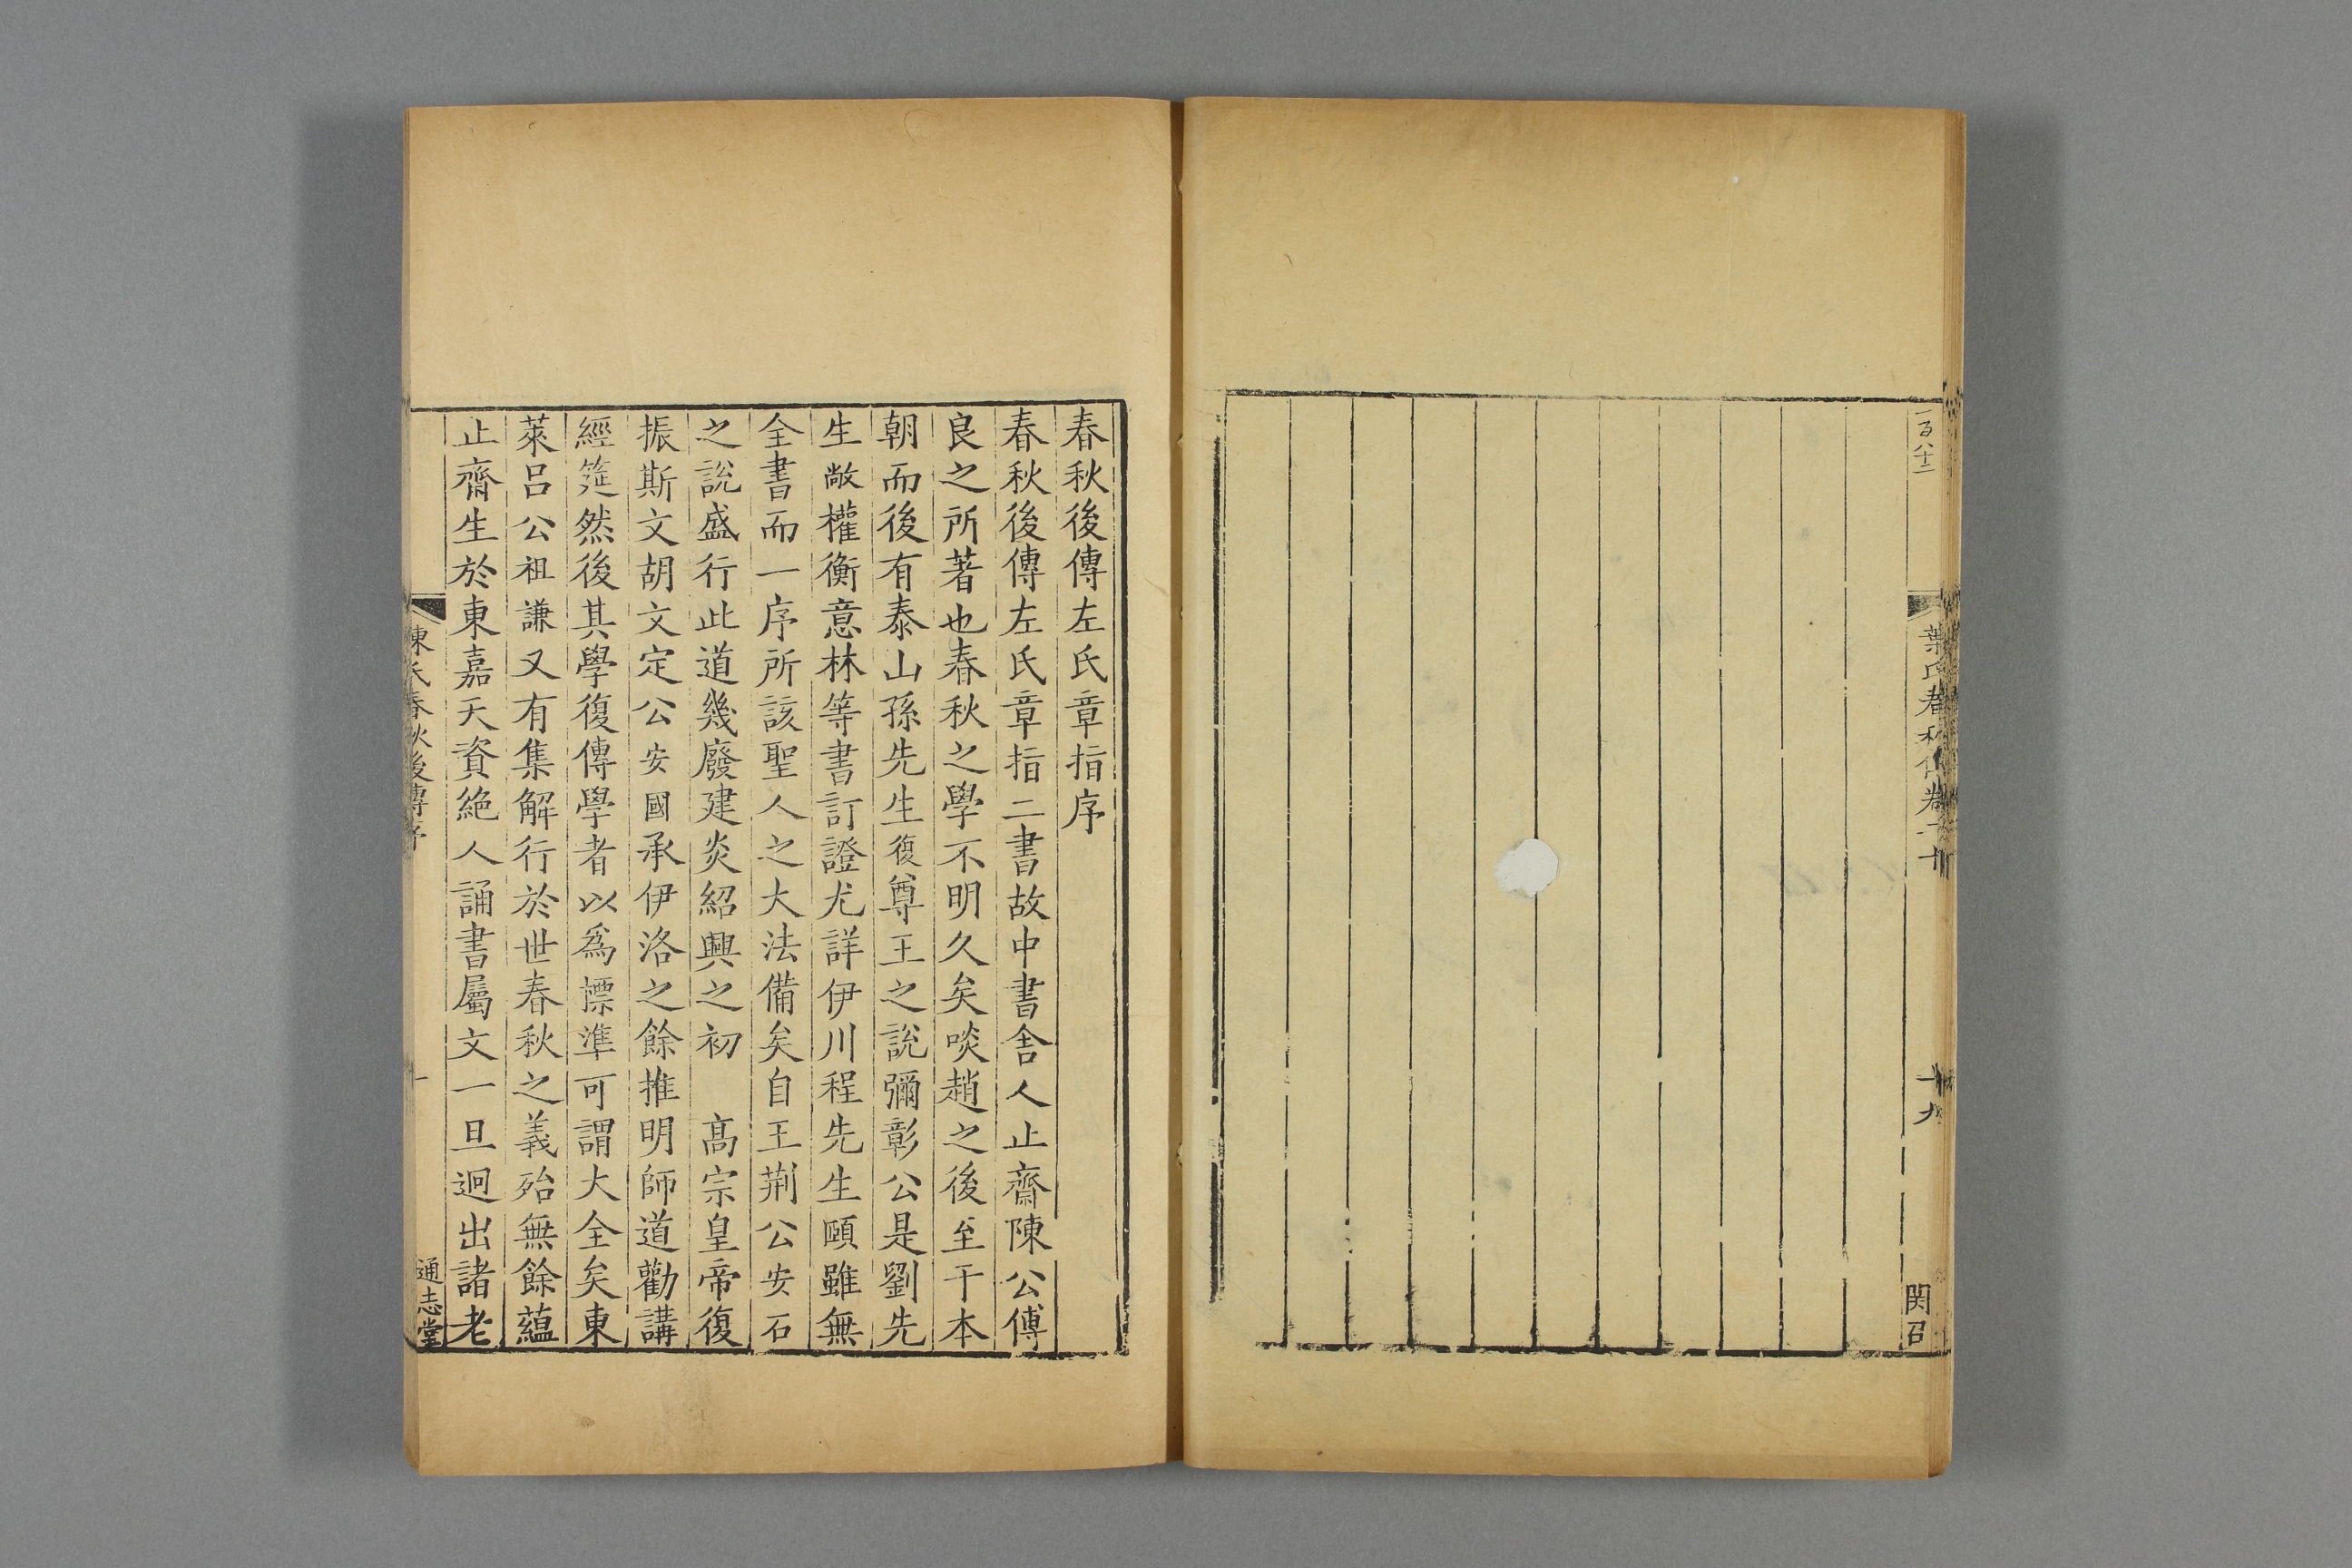 一百八十二
葉氏春秋傳卷二十
十九
関召
春秋後傳左氏章指序
春秋後傳左氏章指二書故中書舍人止齋陳公傅
良之所著也春秋之學不明久矣啖趙之後至于本
朝而後有泰山孫先生復尊王之說彌彰公是劉先
生敞權衡意林等書訂證尤詳伊川程先生頤雖無
全書而一序所該聖人之大法備矣自王荆公安石
之說盛行此道幾廢建炎紹興之初 髙宗皇帝復
振斯文胡文定公安國承伊洛之餘推明師道勸講
經筵然後其學復傳學者以爲標準可謂大全矣東
萊呂公祖謙又有集解行於世春秋之義殆無餘蘊
止齋生於東嘉天資絶人誦書屬文一旦迥出諸老
陳氏春秋後傳序
一
通志堂